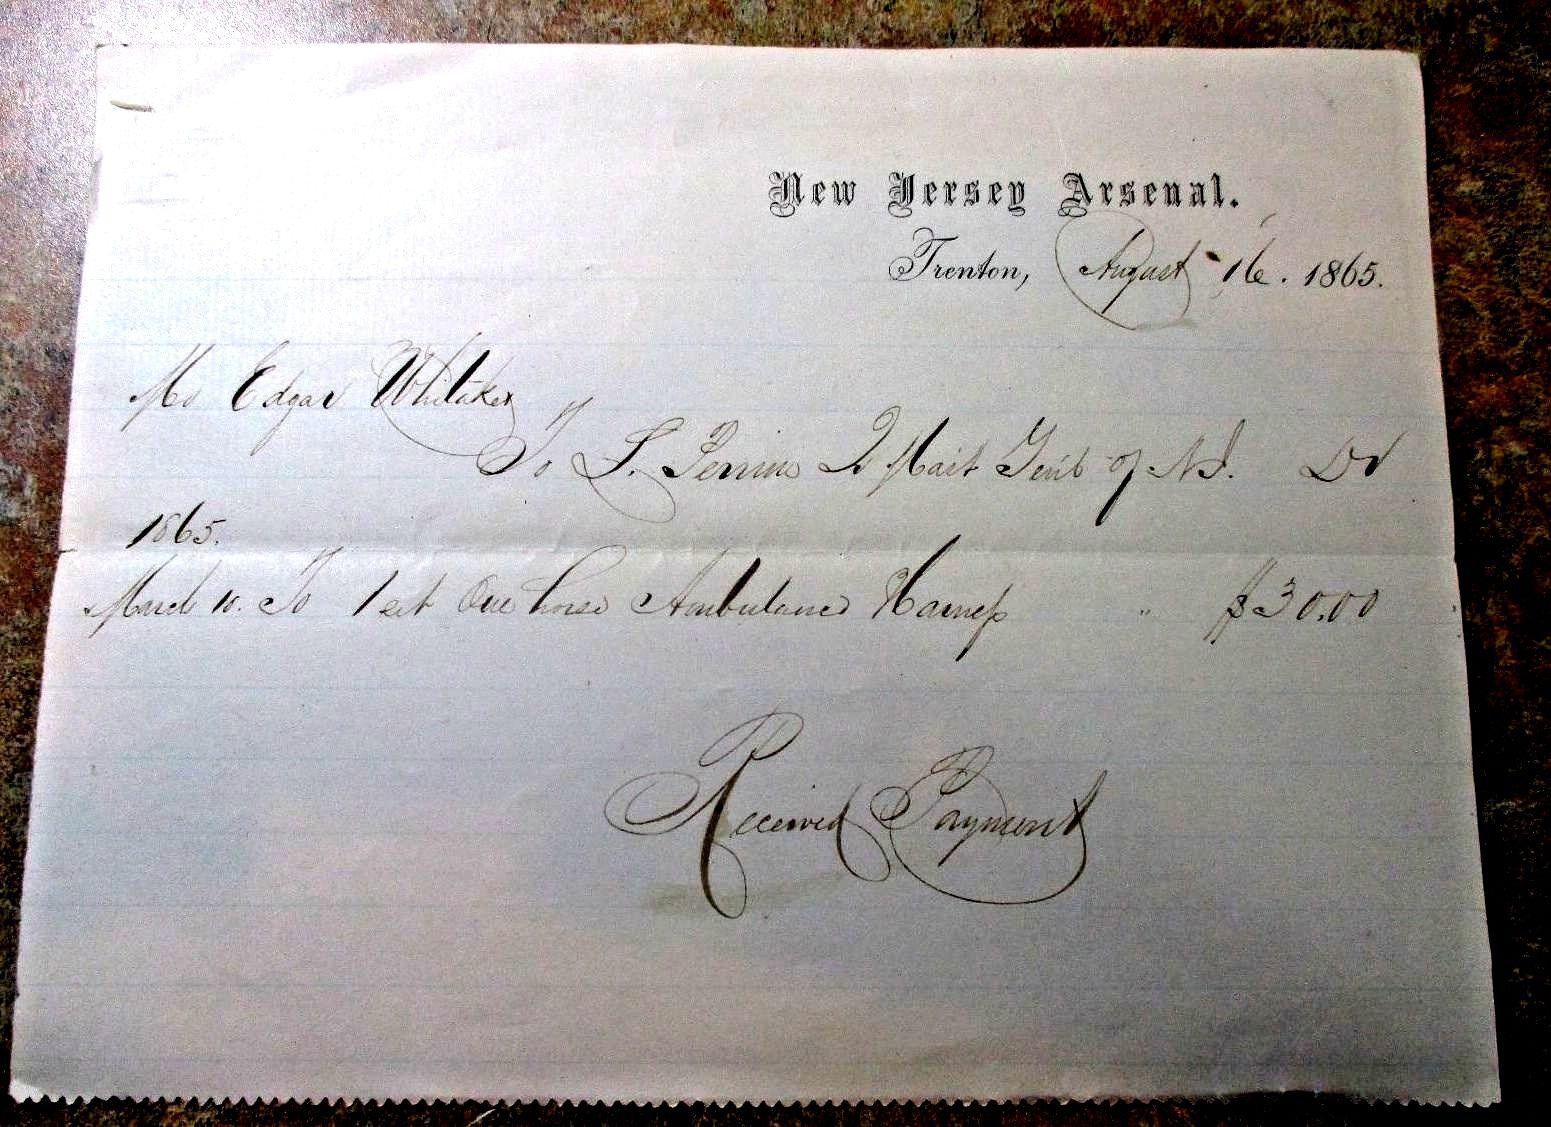 New Jersey Arsenal.
Trenton, August 16. 1865.
Mr Edgar Whitaker
To L. Perrine Q Mast Genl of N.J. Dr
1865.
March 10. To 1 set One horse Ambulance Harness " $30.00
Received Payment